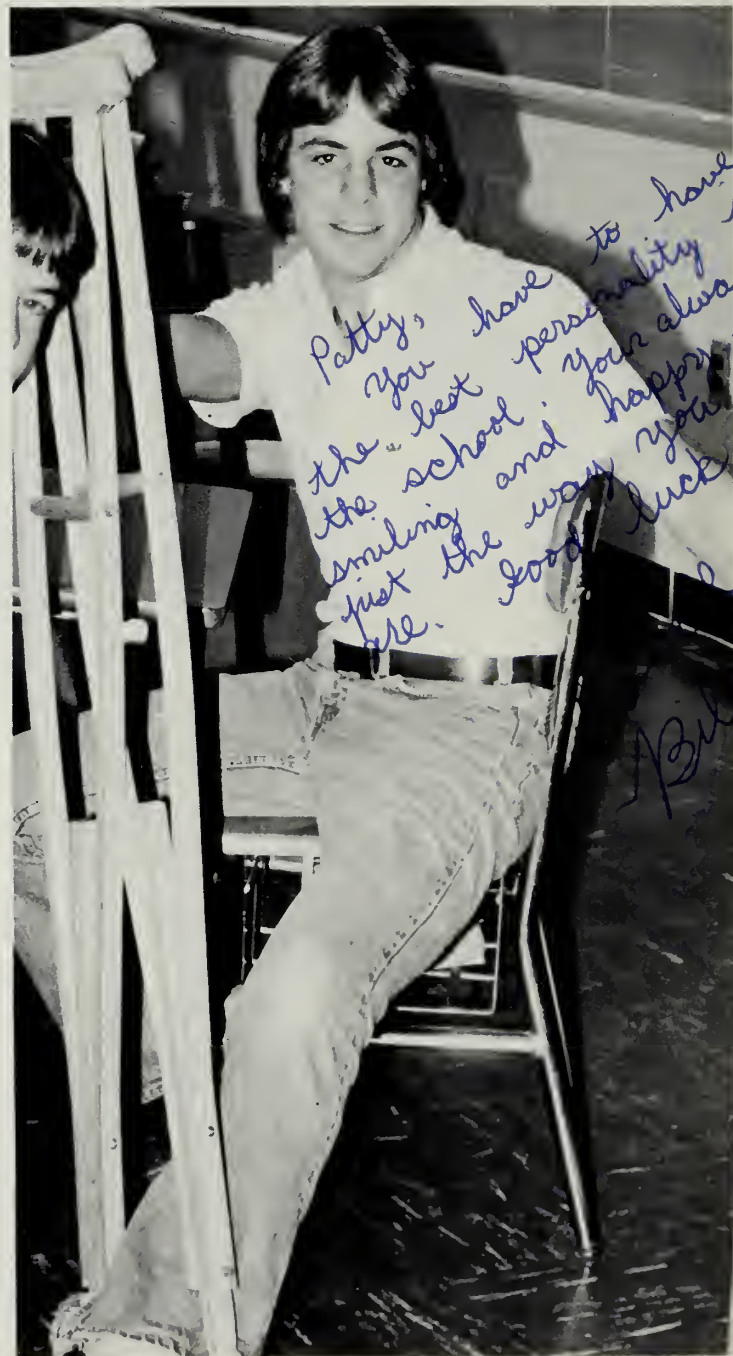 Patty,
you have to have
the best personality
the school. Your alwa
smiling and happy
just the way you
are. Good luck
Bil